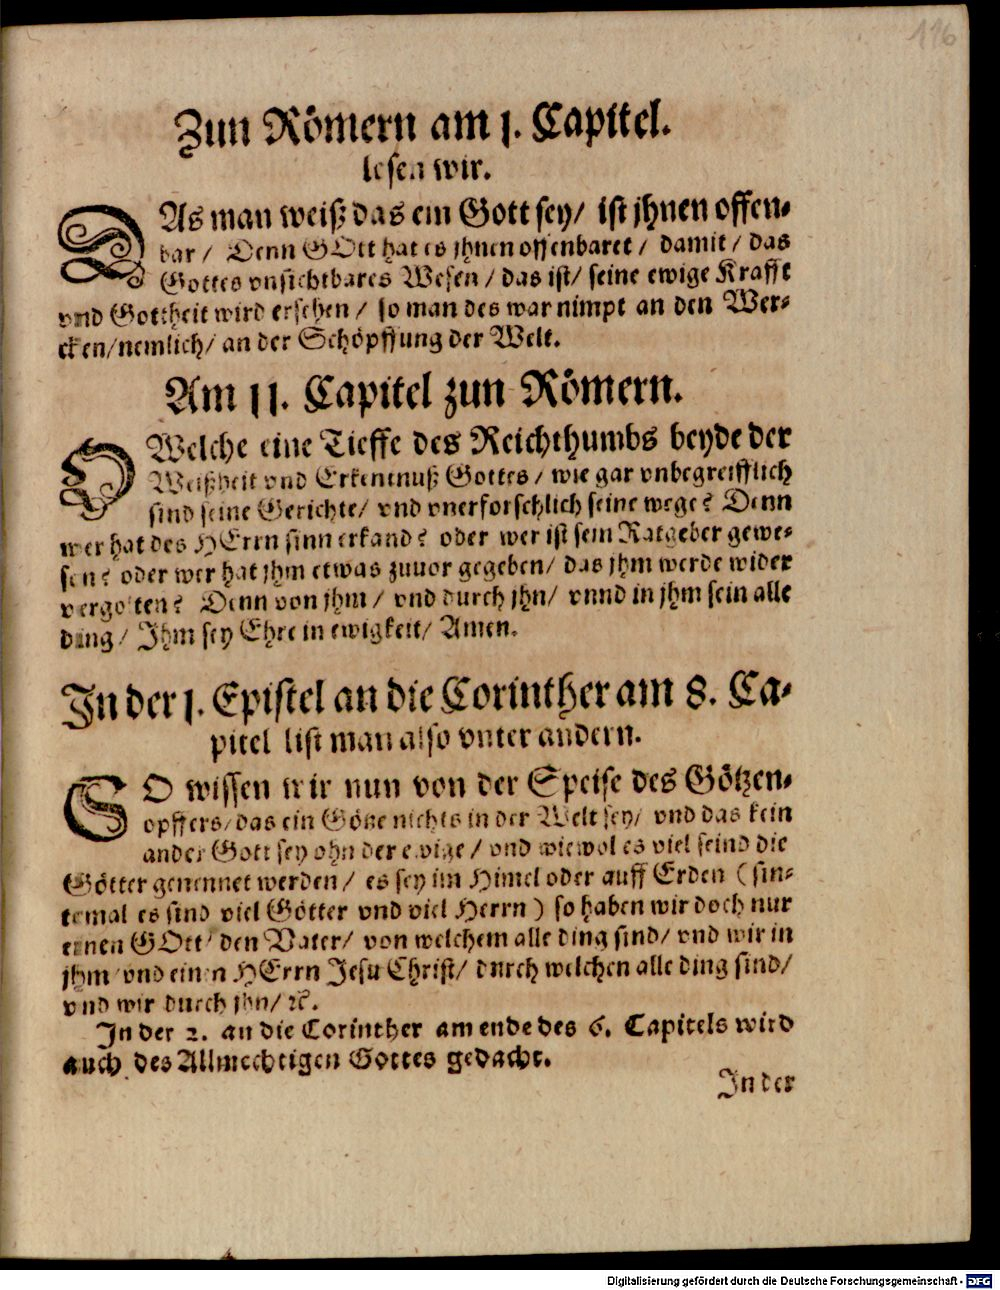 116
Zun Römern am 1. Capitel.
lesen wir.
DAs man weiß das ein Gott sey/ ist jhnen offen-
bar/ Denn GOtt hat es jhnen offenbaret/ damit/ das
Gottes vnsichtbares Wesen/ das ist/ seine ewige Krafft
vnd Gottheit wird ersehen/ so man des war nimpt an den Wer-
cken/nemlich/ an der Schöpffung der Welt.
Am 11. Capitel zun Römern.
O Welche eine Tieffe des Reichthumbs beyde der
Weißheit vnd Erkentnuß Gottes/ wie gar vnbegreifflich
sind seine Gerichte/ vnd vnerforschlich seine wege? Denn
wer hat des HErrn sinn erkand? oder wer ist sein Ratgeber gewe-
sen? oder wer hat jhm etwas zuuor gegeben/ das jhm werde wider
vergolten? Denn von jhm/ vnd durch jhn/ vnnd in jhm sein alle
ding/ Jhm sey Ehre in ewigkeit/ Amen.
Jn der 1. Epistel an die Corinther am 8. Ca-
pitel list man also vnter andern.
SO wissen wir nun von der Speise des Götzen-
opffers/das ein Götze nichts in der Welt sey/ vnd das kein
ander Gott sey ohn der ewige/ vnd wiewol es viel seind die
Götter genennet werden/ es sey im Himel oder auff Erden (sin-
temal es sind viel Götter vnd viel Herrn) so haben wir doch nur
einen GOtt/ den Vater/ von welchem alle ding sind/ vnd wir in
jhm/vnd einen HErrn Jesu Christ/ durch welchen alle ding sind/
vnd wir durch jhn/ ꝛc.
Jn der 2. an die Corinther am ende des 6. Capitels wird
auch des Allmechtigen Gottes gedacht.
Jn der
Digitalisierung gefördert durch die Deutsche Forschungsgemeinschaft - DFG